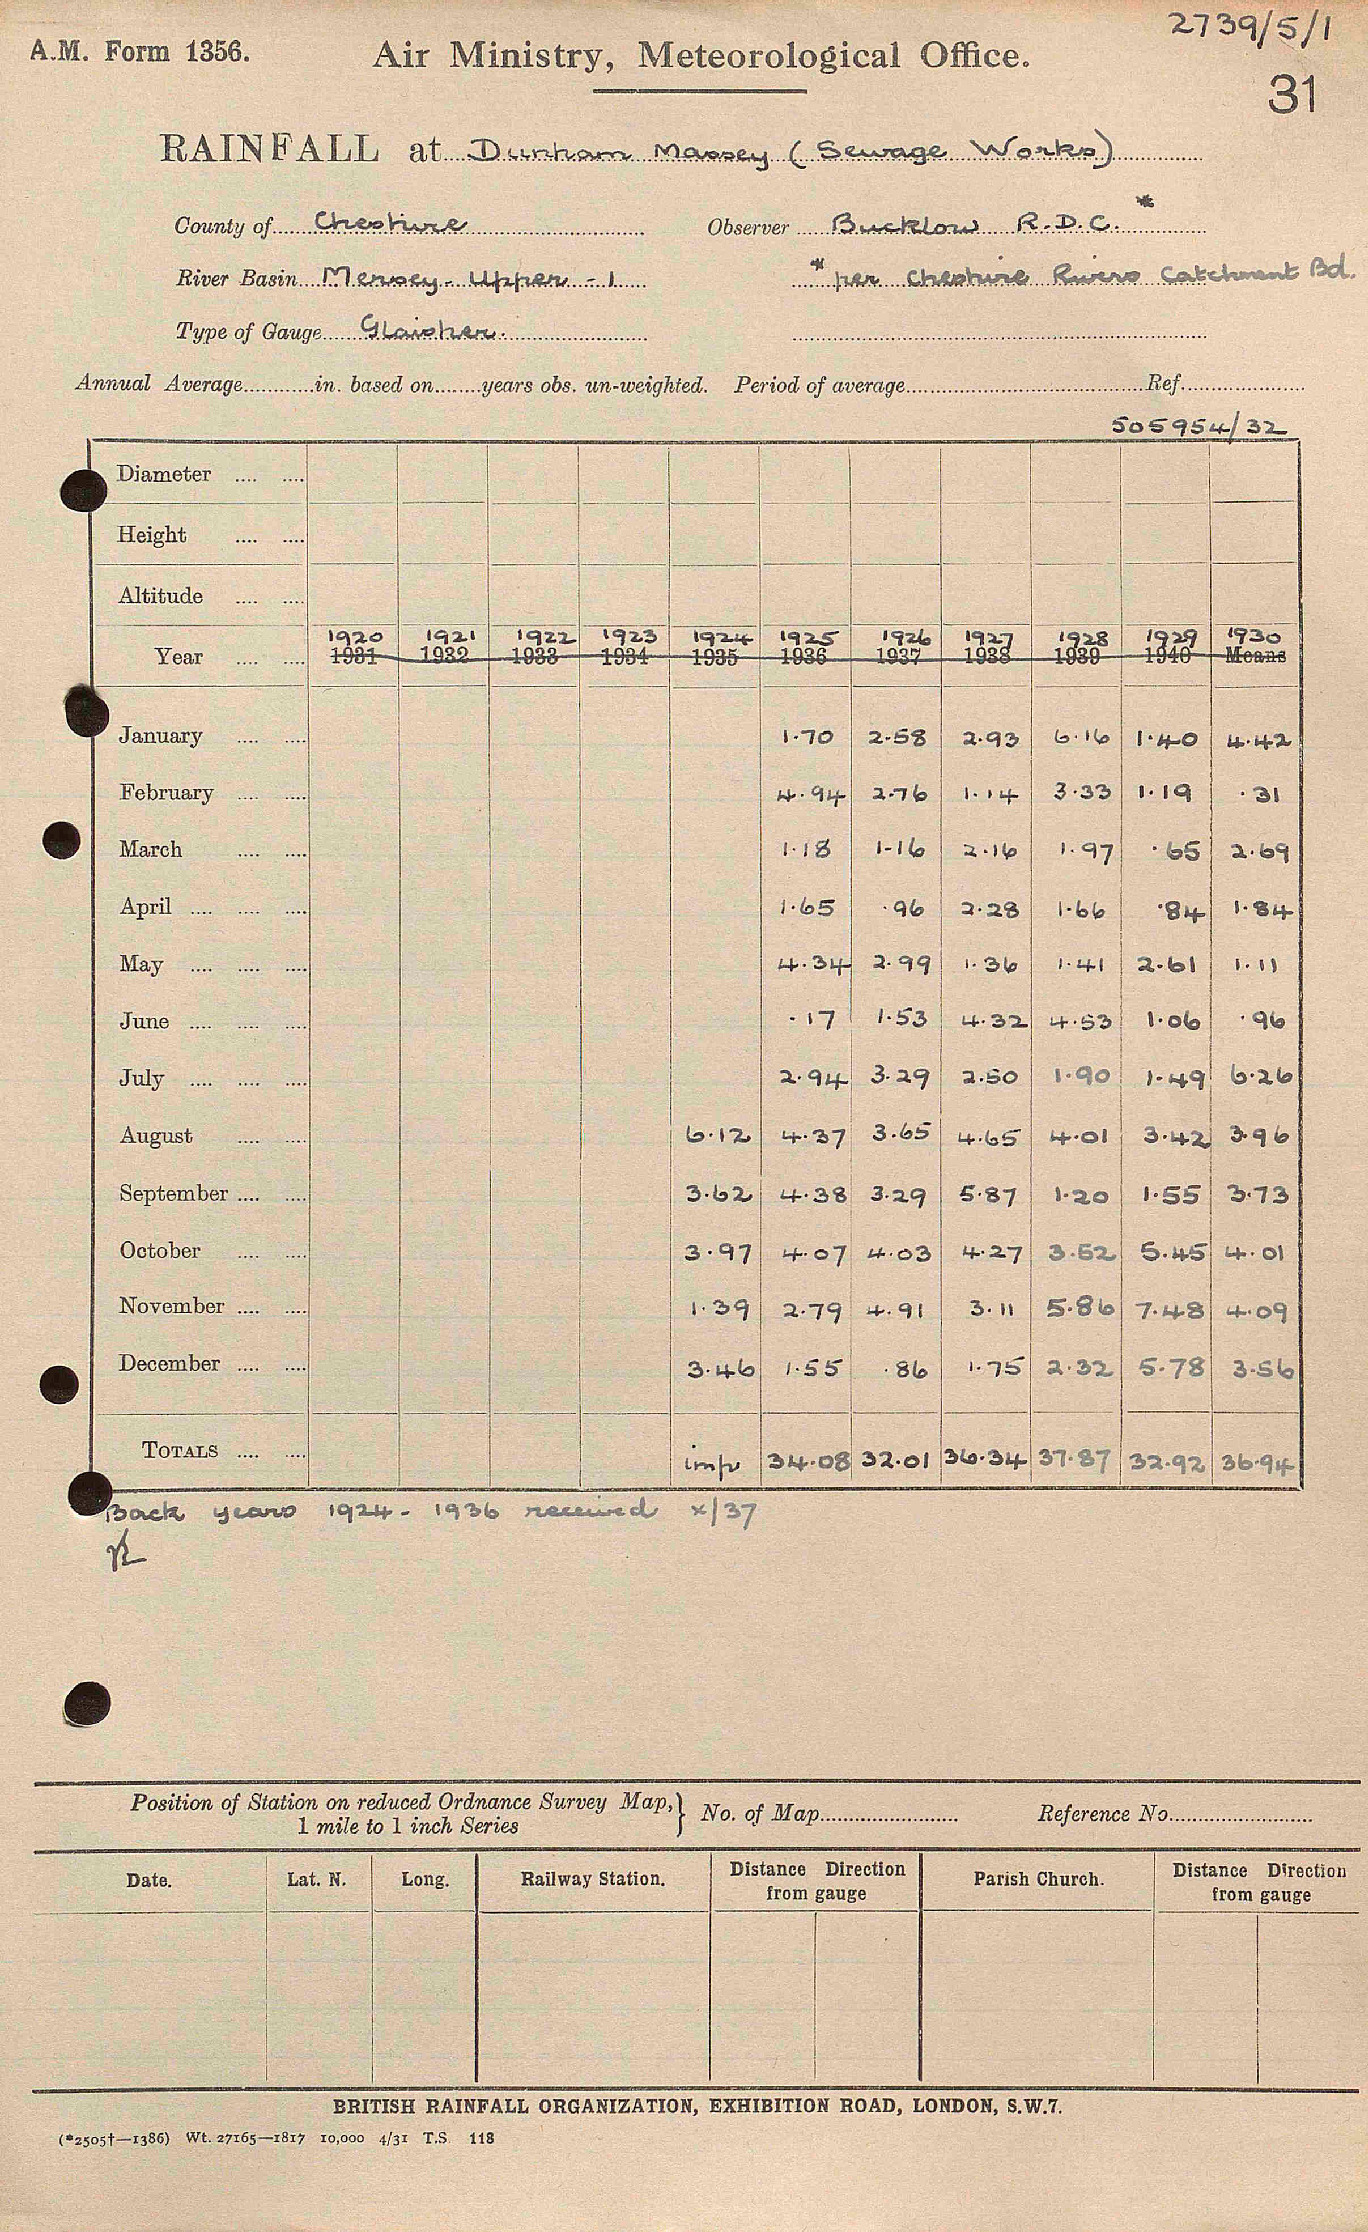 2739/5/1
A.M. Form 1356. Air Ministry, Meteorological Office.
31
RAINFALL at Dunham Massey (Sewage Works)
County of Cheshire Observer Bucklow R.D.C. *
River Basin Mersey - Upper - 1 * per Cheshire Rivers Catchment Bd.
Type of Gauge Glaisher.
Annual Average in. based on years obs. un-weighted. Period of average Ref.
505954/32
Diameter
Height
Altitude
1920 1921 1922 1923 1924 1925 1926 1927 1928 1929 1930
Year 1931 1932 1933 1934 1935 1936 1937 1938 1939 1940 Means
January 1.70 2.58 2.93 6.16 1.40 4.42
February 4.94 2.76 1.14 3.33 1.19 .31
March 1.18 1.16 2.16 1.97 .65 2.69
April 1.65 .96 2.28 1.66 .84 1.84
May 4.34 2.99 1.36 1.41 2.61 1.11
June .17 1.53 4.32 4.53 1.06 .96
July 2.94 3.29 2.50 1.90 1.49 6.26
August 6.12 4.37 3.65 4.65 4.01 3.42 3.96
September 3.62 4.38 3.29 5.87 1.20 1.55 3.73
October 3.97 4.07 4.03 4.27 3.52 5.45 4.01
November 1.39 2.79 4.91 3.11 5.86 7.48 4.09
December 3.46 1.55 .86 1.75 2.32 5.78 3.56
TOTALS imp 34.08 32.01 36.34 37.87 32.92 36.94
Back years 1924 - 1936 received x/37
Position of Station on reduced Ordnance Survey Map, 1 mile to 1 inch Series } No. of Map Reference No.
Date. Lat. N. Long. Railway Station. Distance Direction from gauge Parish Church. Distance Direction from gauge
BRITISH RAINFALL ORGANIZATION, EXHIBITION ROAD, LONDON, S.W.7.
(*2505†—1386) Wt. 27165—1817 10,000 4/31 T.S. 118